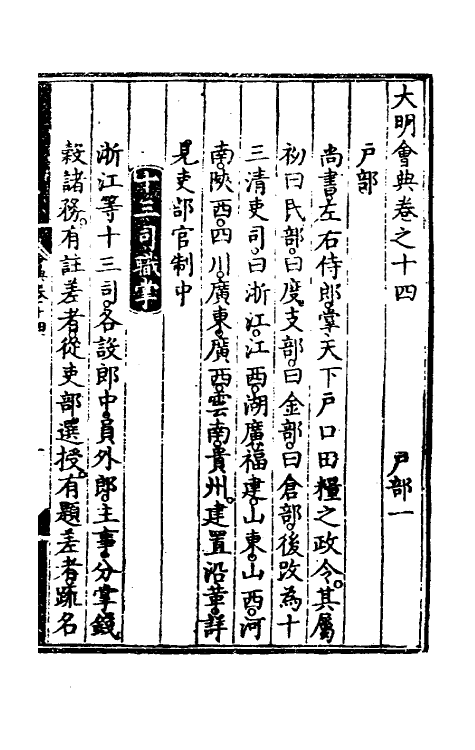 大明會典卷之十四 戶部一
戶部
尚書左右侍郎掌天下戶口田糧之政令其屬
初曰民部曰度支部曰金部曰倉部後改為十
三清吏司曰浙江江西湖廣福建山東山西河
南陝西四川廣東廣西雲南貴州建置沿革詳
見吏部官制中
十三司職掌
浙江等十三司各設郎中員外郎主事分掌錢
穀諸務有註差者從吏部選授有題差者疏名